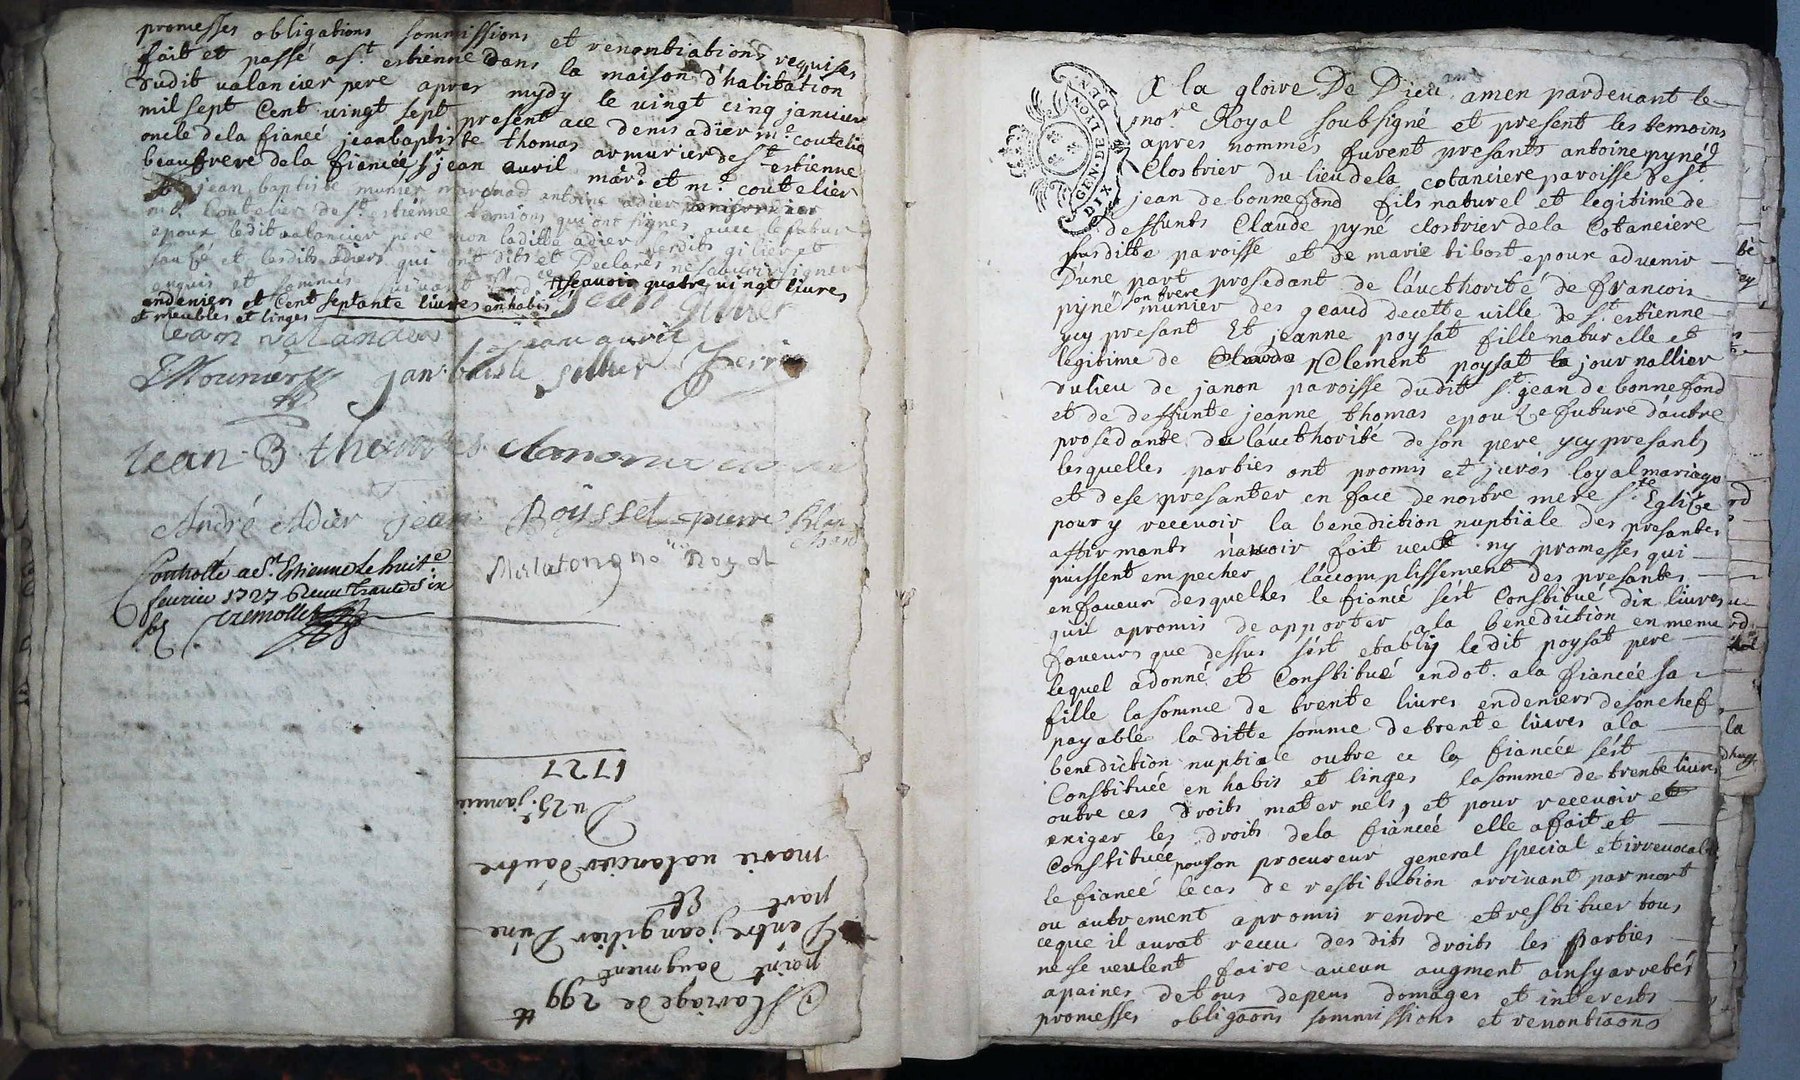 promesses obligations sommissions et renontiations requises
fait et passé a st. estienne dans la maison d'habitation
dudit valancier pere apres mydy le vingt cinq janvier
mil sept Cent vingt sept present ace denis adier me. coutelie
oncle dela fiancée jeanbaptiste thomas armurier de st. estienne
beaufrere dela fiancée sr jean avril mard. et me. coutelier
jean baptiste munier marchad antoine adier
me. Coutelier de st. estienne temoins qui ont signés avec le futur
epoux ledit valancier pere non laditte adier
et lesdits adiers qui ont dits et Declarés ne scavoir signer
enquis et sommés suivant scavoir quatre vingt livres
endeniers et Cent septante livres en habis
et meubles et linges
jean gilier
jean valancier
jean avril
Mounier
jan batiste
Jean B thomas
André Adier jean Boysset pierre
Royal
Controllé a St. Estienne le huite.
fevrier 1727 Receu Trante Six
sols
Mariage de 299 tt
point daugment
D'entre jean gilier D'une
part
Et
marie valancier d'autre
Du 25e. janvie
1727
A la gloire De Dieu amen pardevant le
nore Royal soubsigné et present les temoins
apres nommés furent presants antoine pyné
Clostrier du lieu dela cotanciere paroisse de St.
jean de bonnefond fils naturel et legitime de
deffunts Claude pyné clostrier dela Cotanciere
susditte paroisse et de marie tibost epoux advenir
D'une part prosedant de l'aucthorité de francois
pyné son frere munier des geaud decette ville de St. estienne
ycy presant Et jeanne poysat fille naturelle et
legitime de Clement poysat journallier
du lieu de janon paroisse dudit st. jean de bonnefond
et de deffunte jeanne thomas epouze future d'autre
prosedante de l'aucthorité de son pere ycy presants
lesquelles parties ont promis et jurés loyal mariage
et de se presanter en face de nostre mere ste Eglize
pour y recevoir la benediction nuptiale des presantes
affirmants n'avoir fait veut ny promesses qui
puissent empecher l'accomplissement des presantes
enfaveur desquelles le fiancé s'est Constitué dix livres
quil apromis de apporter ala benediction en meme
faveurs que dessus s'est etably le dit poysat pere
lequel adonné et Constitué en dot ala fiancée sa
fille la somme de trente livres endeniers de son chef
payable laditte somme de trente livres a la
benediction nuptiale outre ce la fiancée s'est
Constituée en habis et linges la somme de trente livres
outre ces droits maternels, et pour recevoir et
exiger les droits dela fiancée elle afait et
Constituée pour son procureur general special et irrevocable
le fiancé le cas de restitution arrivant par mort
ou autrement apromis rendre et restituer tous
ceque il aurat receu des dits droits les Parties
ne se veulent faire aucun augment ainsy arretés
apaines detous depens domages et interests
promesses obligaons sommissions et renontiaons
DIX DEN.
GEN. DE LYON